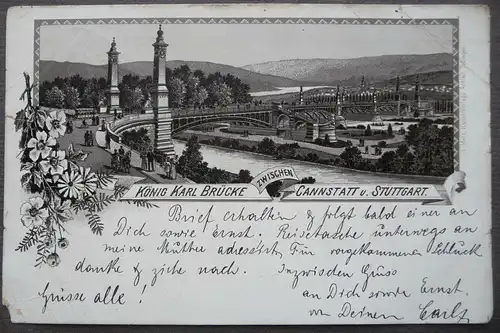 KÖNIG KARL BRÜCKE ZWISCHEN CANNSTATT U. STUTTGART.
Brief erhalten & folgt bald einer an
Dich sowie Ernst. Reisetasche unterwegs an
meine Mutter adressirt. Für vorgekommenen Schluck
danke & ziehe nach. Inzwischen Gruss
an Dich sowie Ernst.
Grüsse alle! von Deinem Carl